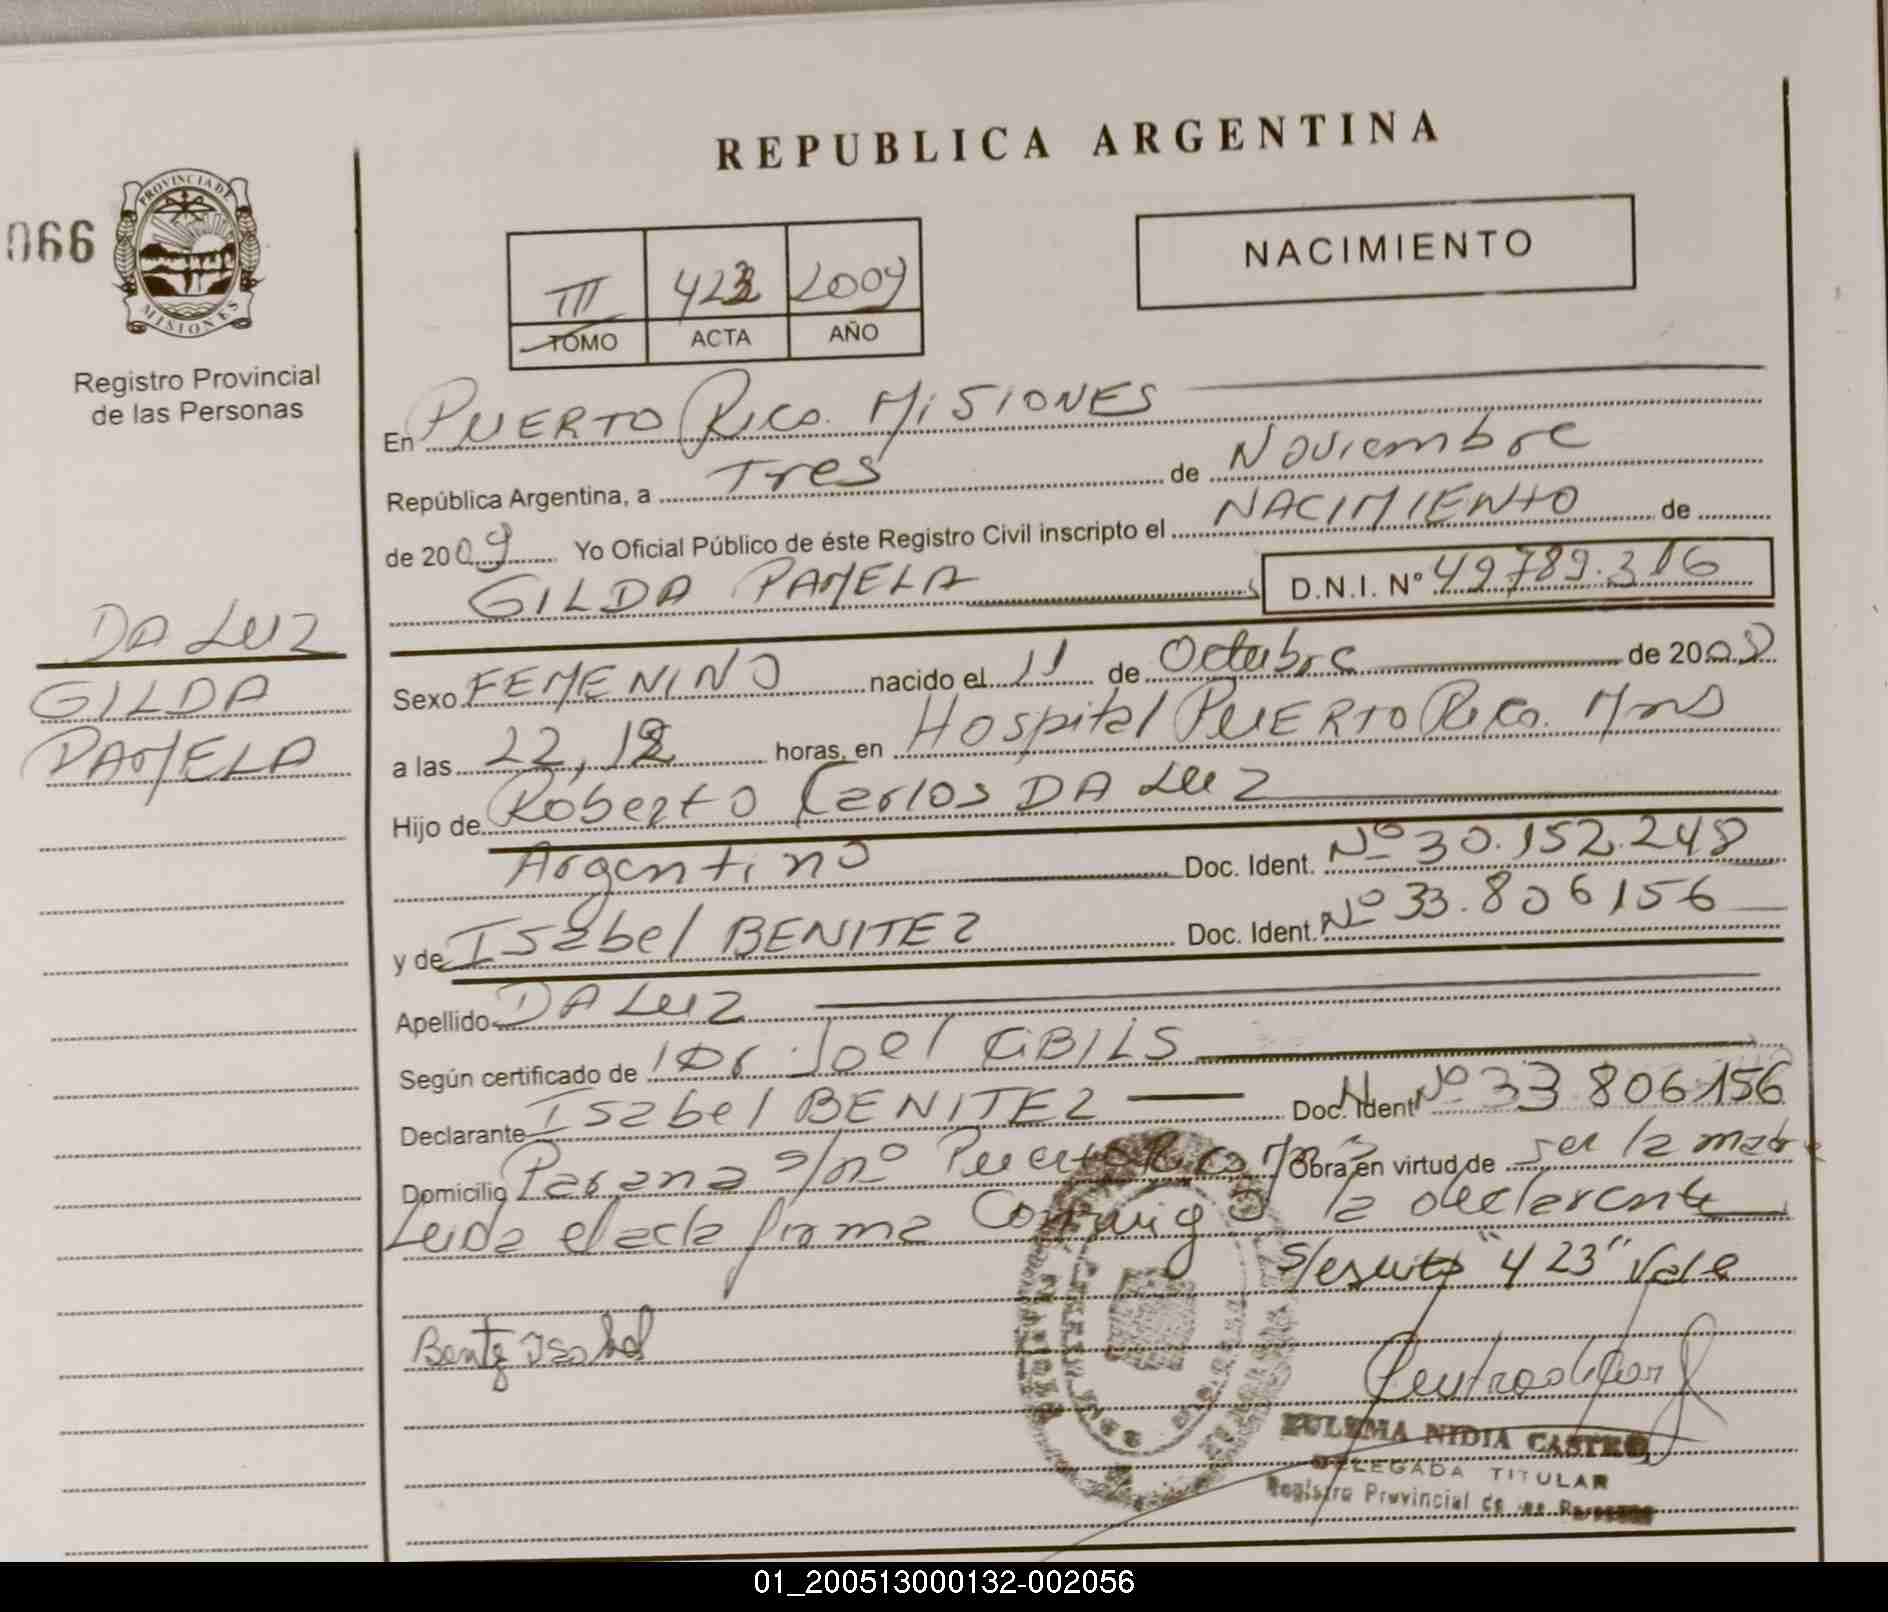 REPUBLICA ARGENTINA
066
PROVINCIA DE
MISIONES
Registro Provincial
de las Personas
III 423 2009
TOMO ACTA AÑO
NACIMIENTO
En PUERTO RICO. MISIONES
República Argentina, a Tres de Noviembre
de 2009 Yo Oficial Público de éste Registro Civil inscripto el NACIMIENTO de
GILDA PAMELA
D.N.I. Nº 49789.316
DA LUZ
GILDA
PAMELA
Sexo FEMENINO nacido el 11 de Octubre de 20
a las 22,12 horas, en Hospital PUERTO Rico. Mnes
Hijo de Roberto Carlos DA LUZ
Argentino Doc. Ident. Nº 30.152.248
y de Isabel BENITEZ Doc. Ident. Nº 33.806156
Apellido DA LUZ
Según certificado de Dr Joel
Declarante Isabel BENITEZ Doc. Ident Nº 33 806156
Domicilio Parana s/nº Puerto Rico Obra en virtud de ser la madre
Leida el acta firma Conmigo la declarente
S/escrito "423" Vale
Isabel
EULEMA NIDIA CASTRO
DELEGADA TITULAR
Registro Provincial de las Personas
01_200513000132-002056